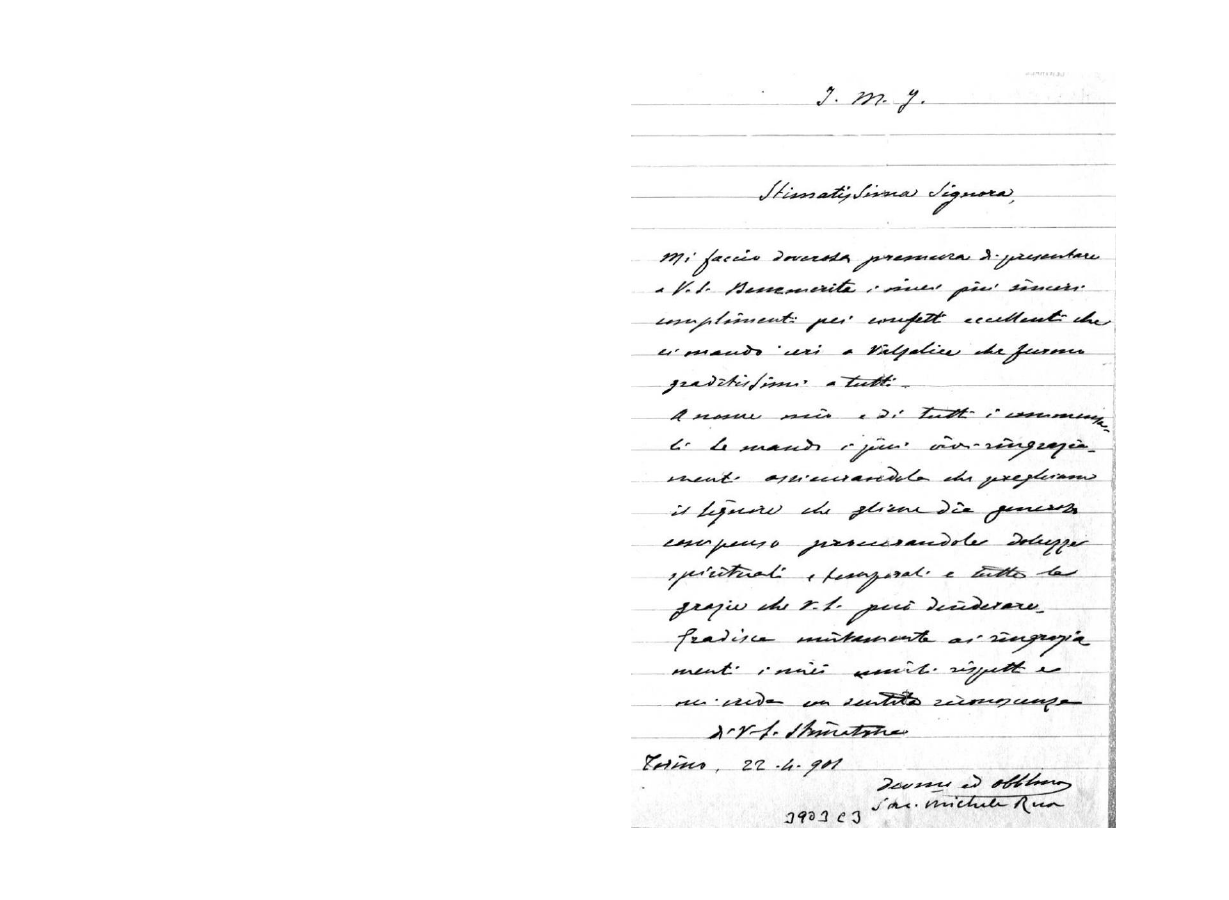 J. M. J.
Stimatissima Signora,
Mi faccio doverosa premura di presentare
a V. S. Benemerita i miei più sinceri
complimenti pei confetti eccellenti che
ci mandò ieri a Valsalice che furono
graditissimi a tutti.
A nome mio e di tutti i commensa-
li Le mando i più vivi ringrazia-
menti assicurandola che preghiamo
il Signore che gliene dia generoso
compenso procurandole dolcezze
spirituali e temporali e tutte le
grazie che V. S. può desiderare.
Gradisca unitamente ai ringrazia
menti i miei umili rispetti e
mi creda con sentita riconoscenza
di V. S. Stimatma
Torino, 22.4.901
Devmo ed obblmo
Sac. Michele Rua
3903 C 3